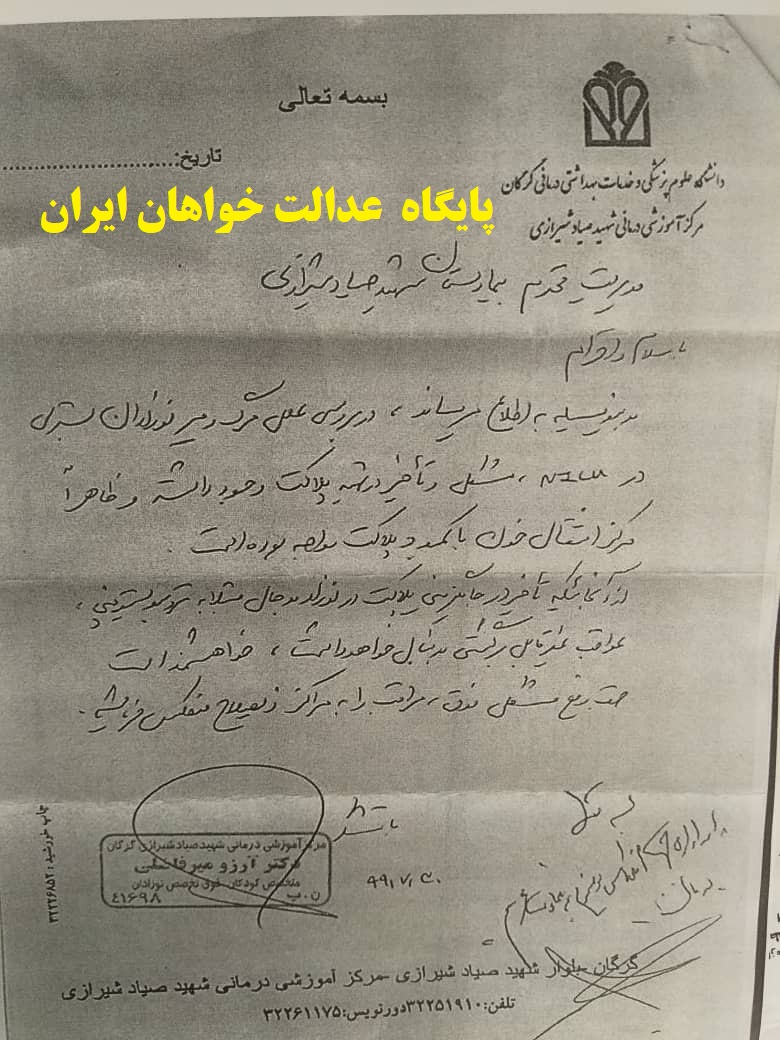 بسمه تعالی
تاریخ:............................
دانشگاه علوم پزشکی و خدمات بهداشتی درمانی گرگان
مرکز آموزشی درمانی شهید صیاد شیرازی
پایگاه عدالت خواهان ایران
مدیریت محترم بیمارستان شهید صیاد شیرازی
با سلام و احترام
بدینوسیله به اطلاع میرساند ، در بررسی علل مرگ و میر نوزادان بستری
در NICU ، مشکل و تأخیر در تهیه پلاکت وجود داشته و ظاهراً
مرکز انتقال خون با کمبود پلاکت مواجه بوده است .
از آنجائیکه تأخیر در جایگزینی پلاکت در نوزاد بدحال مبتلا به ترومبوسیتوپنی ،
عواقب غیرقابل برگشتی بدنبال خواهد داشت ، خواهشمند است
جهت رفع مشکل فوق ، مراتب را به مراکز ذیصلاح منعکس فرمایید .
با تشکر
۹۹،۷،۳۰
مرکز آموزشی درمانی شهید صیاد شیرازی گرگان
دکتر آرزو میرفاضلی
متخصص کودکان، فوق تخصص نوزادان
ن.پ ٤١۶۹۸
چاپ خورشید : ۳۲۲۲۶۸۵۲
گرگان -بلوار شهید صیاد شیرازی -مرکز آموزشی درمانی شهید صیاد شیرازی
تلفن:۳۲۲۵۱۹۱۰دورنویس:۳۲۲۶۱۱۷۵